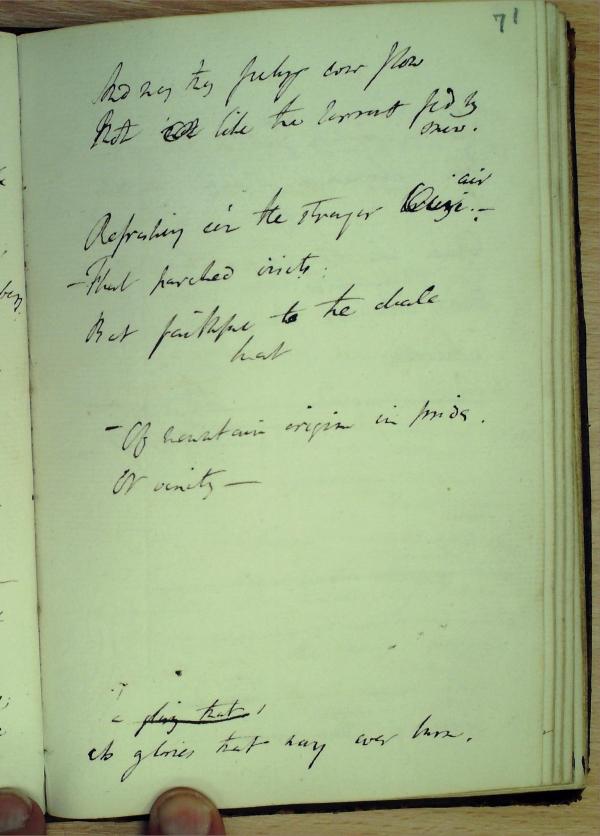 71
And may thy feelings ever flow
Not like the torrent fed by
snow.
air
Refreshing in the stranger
- That parched visits:
But faithful to the dale
heat
- Of mountain origin in pride.
Or vanity —
a glory that
its glories that may ever burn.